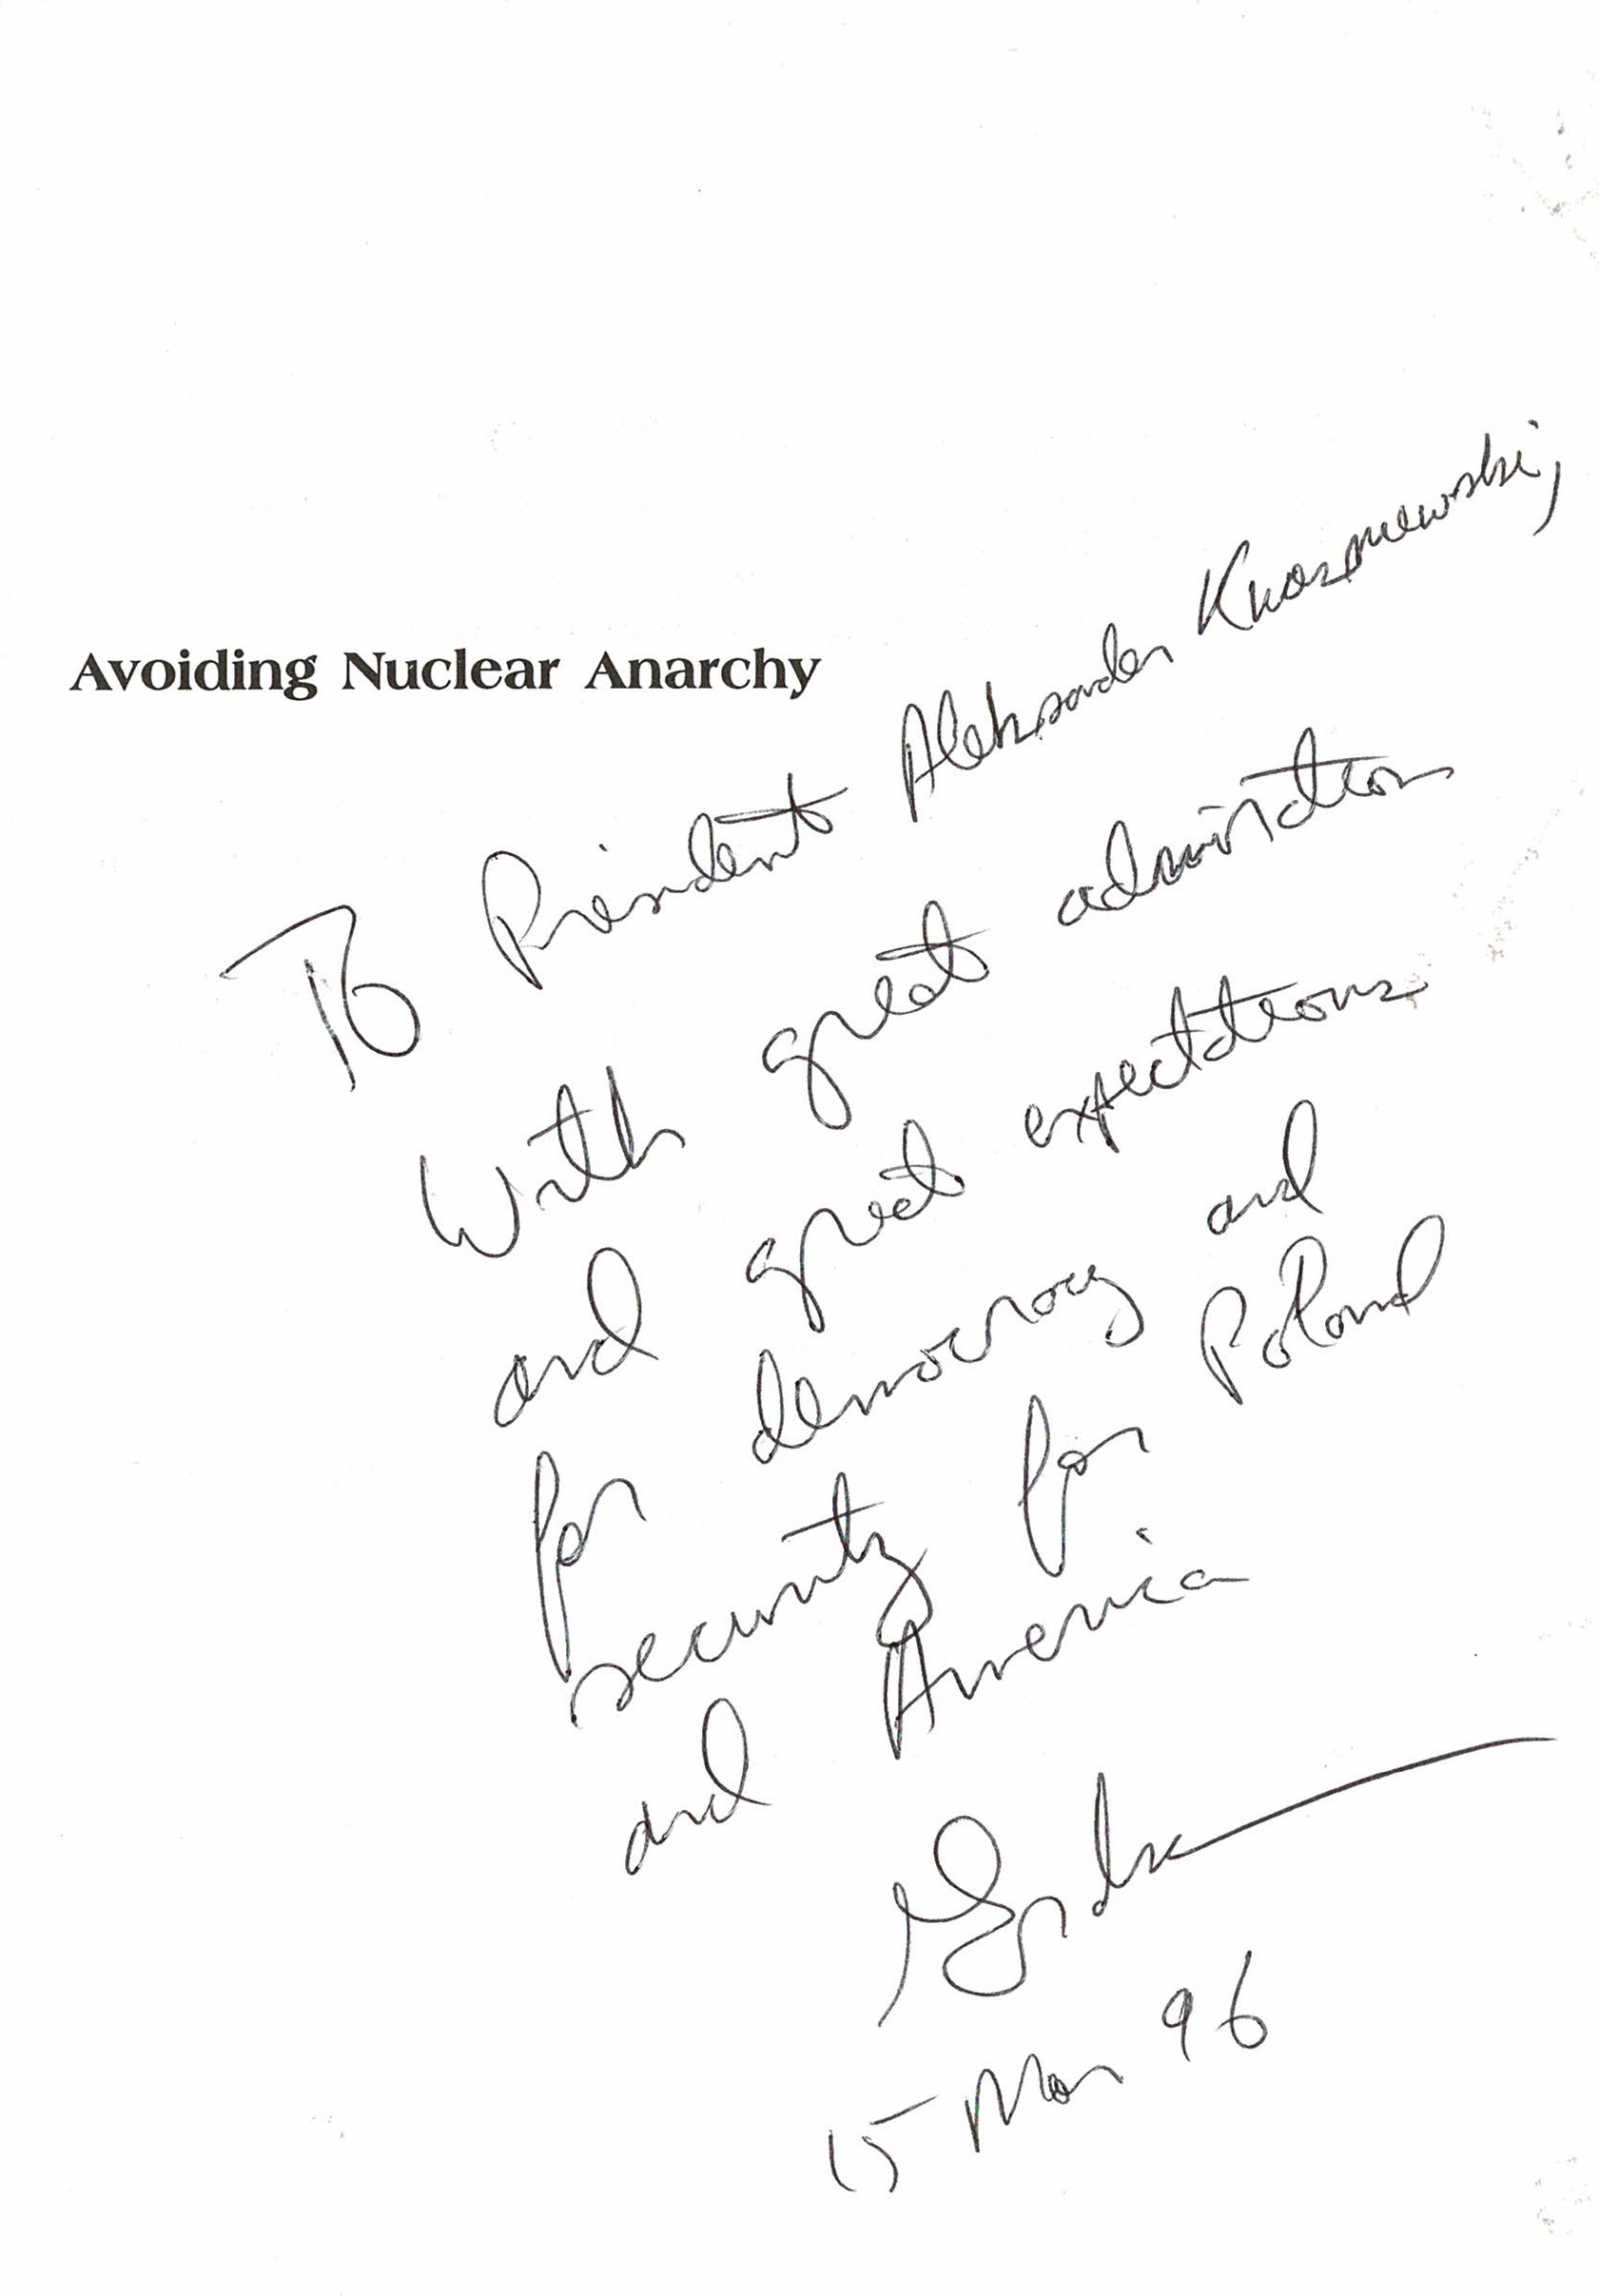 Avoiding Nuclear Anarchy
To President Aleksander Kwasniewski,
With great admiration
and great expectations
for democracy and
security for Poland
and America
15 Mar 96